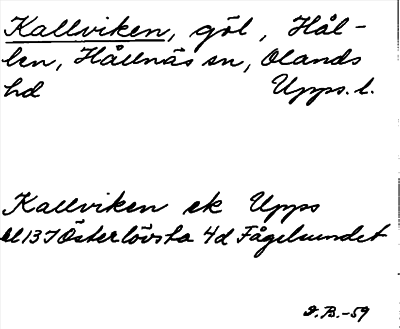 Kallviken, göl, Hål-
len, Hållnäs sn, Olands
hd Upps. l.
Kallviken ek Upps
bl 137 Österlövsta 4d Fågelsundet
J.B.-59